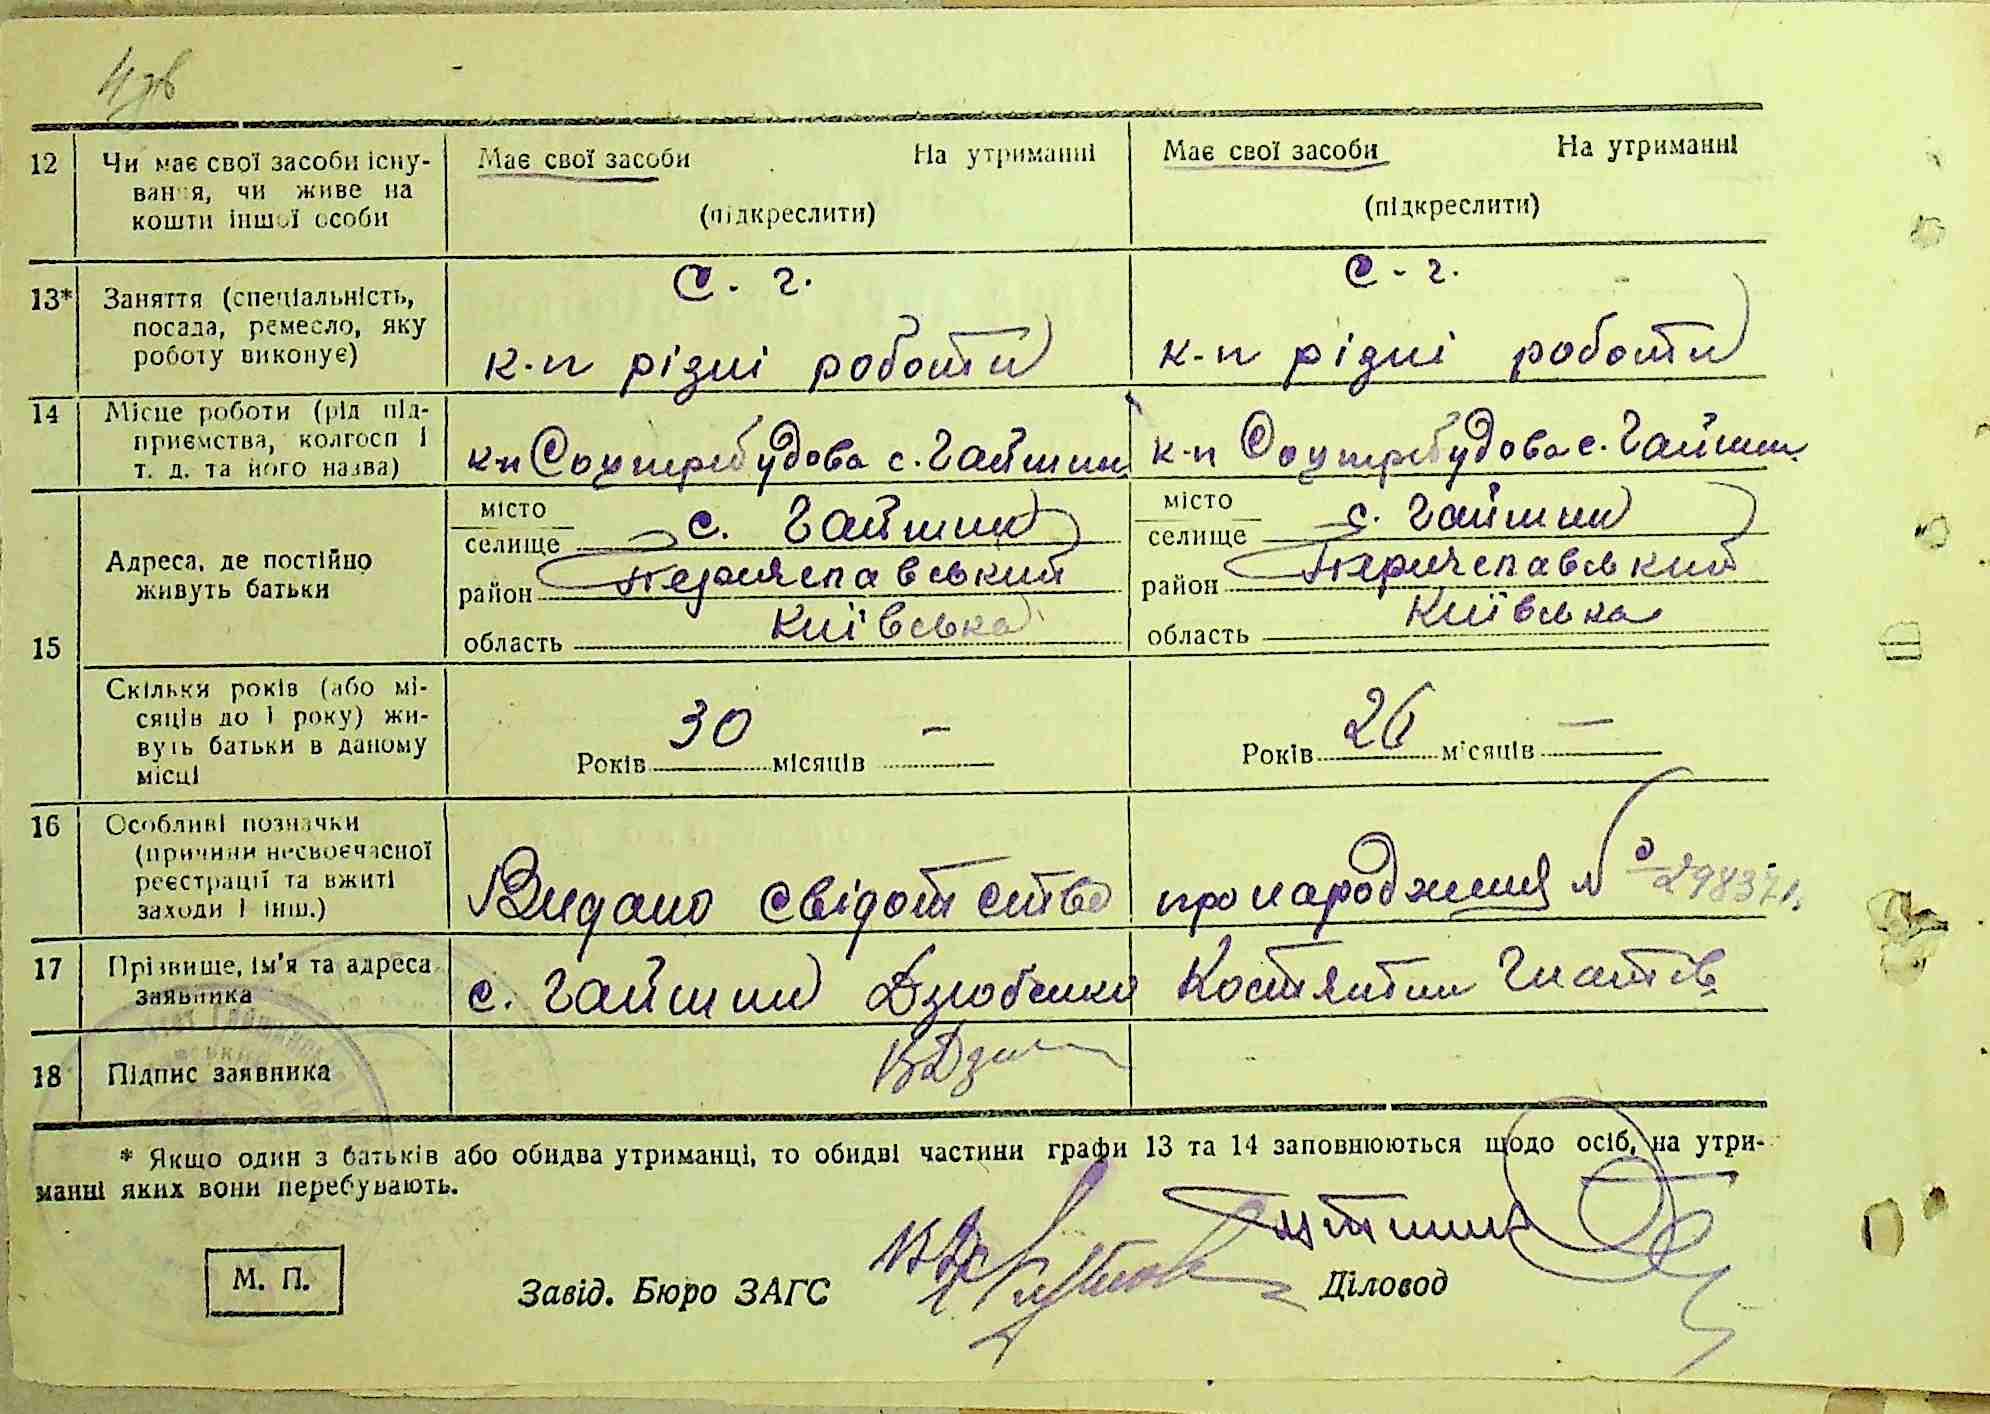 4 зв
12 Чи має свої засоби існу- Має свої засоби На утриманні Має свої засоби На утриманні
вання, чи живе на
кошти іншої особи (підкреслити) (підкреслити)
С. г. С-г.
13* Заняття (спеціальність,
посада, ремесло, яку
роботу виконує) к-п різні роботи к-п різні роботи
14 Місце роботи (рід під-
приємства, колгосп і
т. д. та його назва) к-п Соцперебудова с. Гайшин к-п Соцперебудова с. Гайшин
місто місто
селище с. Гайшин селище с. Гайшин
Адреса, де постійно
живуть батьки район Переяславський район Переяславський
15 область Київська область Київська
Скільки років (або мі-
сяців до 1 року) жи-
вуть батьки в даному
місці Років 30 місяців — Років 26 місяців —
16 Особливі позначки
(причини несвоєчасної
реєстрації та вжиті
заходи і інш.) Видано свідотство про народження №
17 Прізвище, ім'я та адреса
заявника с. Гайшин Дзюбенко Костянтин Гнатів
18 Підпис заявника
* Якщо один з батьків або обидва утриманці, то обидві частини графи 13 та 14 заповнюються щодо осіб, на утри-
манні яких вони перебувають.
М. П. Завід. Бюро ЗАГС Діловод